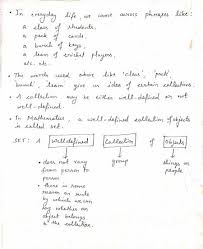 • In everyday life, we come across phrases like:
a class of students,
a pack of cards,
a bunch of keys,
a team of cricket players,
etc. etc.
• The words used above like 'class', 'pack',
bunch', team give us idea of certain collections.
• A collection may be either well-defined or not
well-defined.
• In Mathematics, a well-defined collection of objects
is called set.
SET: A Well defined Collection of Objects
• does not vary from person to person
• there is some reason or rule by which we can say whether an object belongs to the collection.
group
things or people